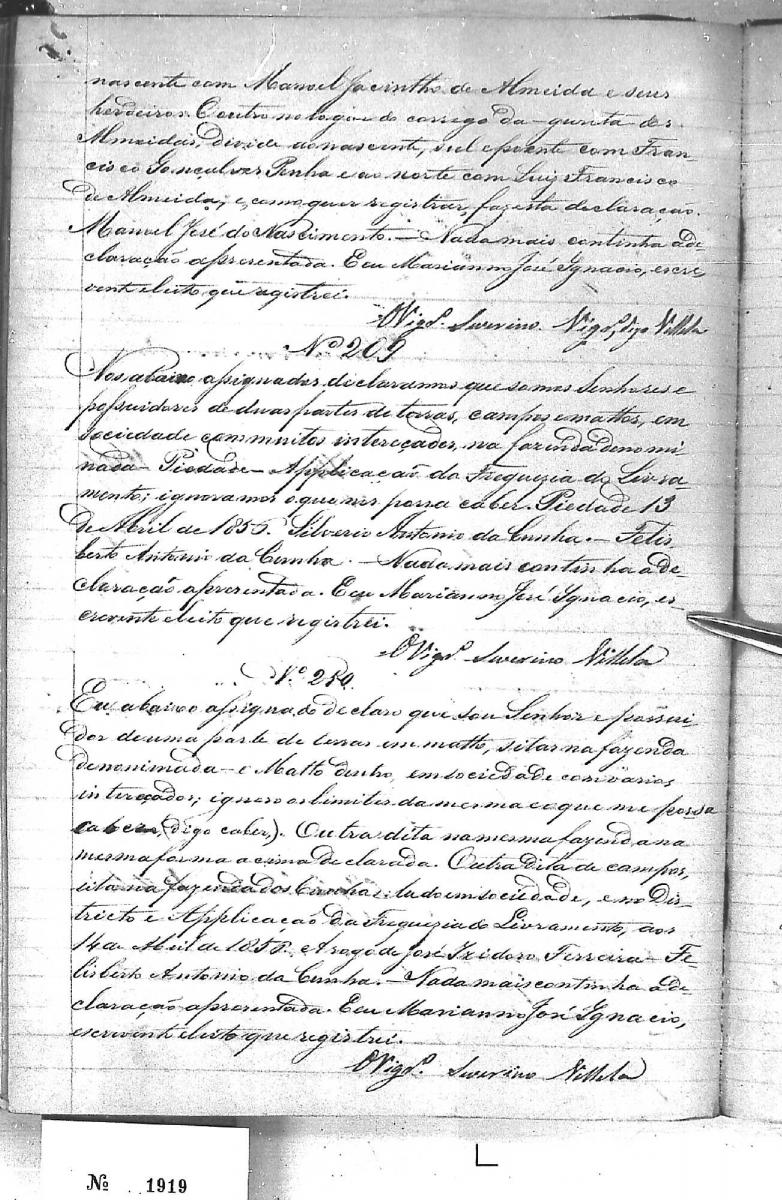 nascente com Manoel Jacintho de Almeida e seus
herdeiros. E outro no logar do corrego da gurita dos
Almeidas, divide ao nascente, sul e poente com Fran
cisco Gonçalves Penha e ao norte com Luiz Francisco
de Almeida, e, como quer registrar, faz esta declaração.
Manoel José do Nascimento. — Nada mais continha a de
claração apresentada. Eeu Marianno José Ignacio, escre
vente eleito que registrei.
O Vigrº. Severino Vigrº, digo Villela
Nº 209
Nos abaixo assignados declaramos que somos Senhores e
possuidores de duas partes de terras, campos e mattos, em
sociedade com muitos intereçados, na fazenda denomi
nada — Piedade — Applicação da Freguezia do Livra-
mento; ignoramos o que nos possa caber. Piedade 13
de Abril de 1855. Silverio Antonio da Cunha. — Felis
berto Antonio da Cunha. — Nada mais continha a de-
claração apresentada. Eeu Marianno José Ignacio, es-
crevente eleito que registrei.
O Vigrº. Severino Villela
Nº 210
Eu abaixo assignado declaro que sou Senhor e possui-
dor de uma parte de terras em matto, sitas na fazenda
denonimada — Matto dentro, em sociedade com varios
intereçados; ignoro os limites da mesma e o que me possa
caber, (digo caber,). Outra dita na mesma fazenda na
mesma forma acima declarada. Outra dita de campos,
sita na fazenda dos Cunhas: tudo em sociedade, e no Dis-
tricto e Applicação da Freguezia do Livramento, aos
14 de Abril de 1855. A rogo de José Izidoro Ferreira — Fe-
lisberto Antonio da Cunha. — Nada mais continha a de-
claração apresentada. Eeu Marianno José Ignacio,
escrevente eleito que registrei.
O Vigrº. Severino Villela
Nº 1919